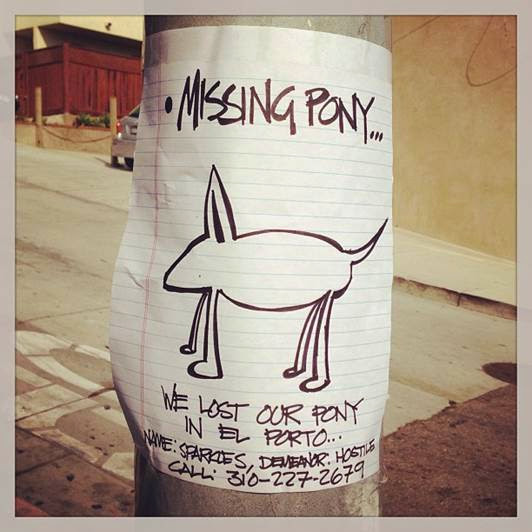 • MISSING PONY...
WE LOST OUR PONY
IN EL PORTO...
NAME: SPARKLES, DEMEANOR: HOSTILE
CALL: 310-227-2679